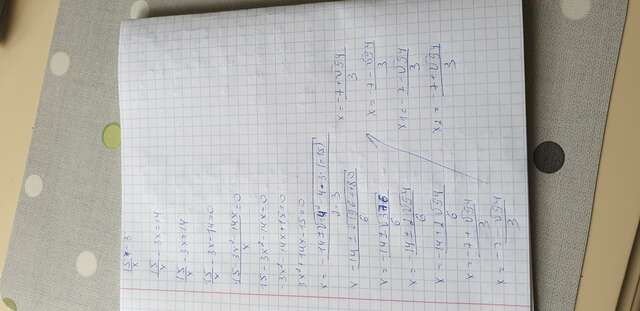 15/x - 3
15/x - 3x = 14
15/x - 3x = 14
15/x - 3x - 14 = 0
15 - 3x² - 14x / x = 0
15 - 3x² - 14x = 0
-3x² - 14x + 15 = 0
3x² + 14x - 15 = 0
x = -14 ± √14² - 4·3·(-15) / 2·3
x = -14 ± √196 + 180 / 6
x = -14 ± √376 / 6
x = -14 ± 2√94 / 6
x = -14 + 2√94 / 6
x = -7 + √94 / 3
x = -7 - √94 / 3
x = -7 + √94 / 3
x = -7 - √94 / 3
x₁ = -7 - √94 / 3
x₂ = -7 + √94 / 3